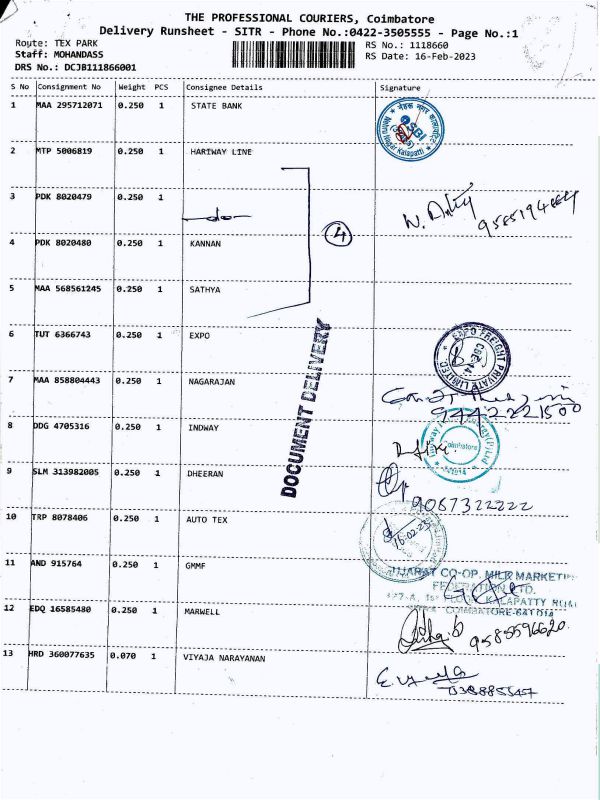 THE PROFESSIONAL COURIERS, Coimbatore
Delivery Runsheet - SITR - Phone No.:0422-3505555 - Page No.:1
Route: TEX PARK RS No.: 1118660
Staff: MOHANDASS RS Date: 16-Feb-2023
DRS No.: DCJB111866001
S No Consignment No Weight PCS Consignee Details Signature
1 MAA 295712071 0.250 1 STATE BANK
SBI
2 MTP 5006819 0.250 1 HARIWAY LINE
3 PDK 8020479 0.250 1
-do-
4
4 PDK 8020480 0.250 1 KANNAN
5 MAA 568561245 0.250 1 SATHYA
6 TUT 6366743 0.250 1 EXPO
EXPO FREIGHT PRIVATE LIMITED
7 MAA 858804443 0.250 1 NAGARAJAN
9442221500
8 DDG 4705316 0.250 1 INDWAY
DOCUMENT DELIVERY
9 SLM 313982005 0.250 1 DHEERAN
9087322222
10 TRP 8078406 0.250 1 AUTO TEX
16-02-23
11 AND 915764 0.250 1 GMMF
CO-OP. MILK MARKETING
FEDERATION LTD.
KALAPATTY ROAD
COIMBATORE-641014
12 EDQ 16585480 0.250 1 MARWELL
9585596620
13 HRD 360077635 0.070 1 VIYAJA NARAYANAN